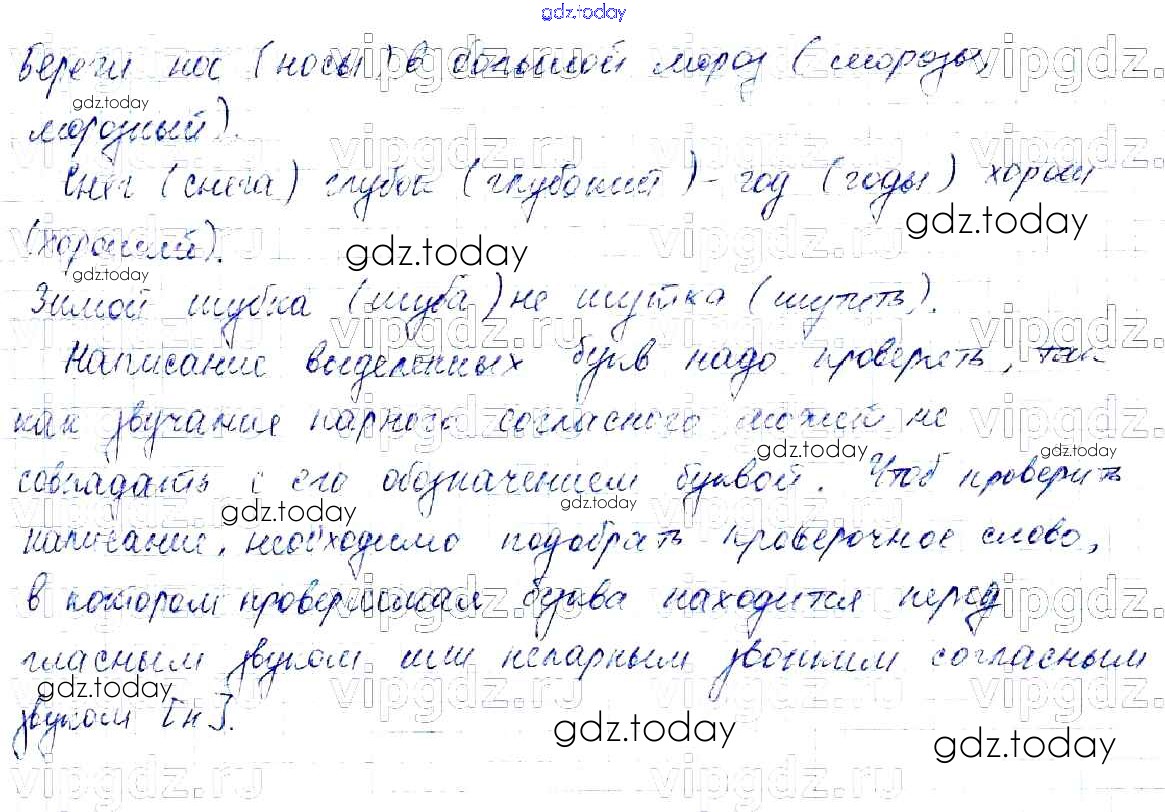 gdz.today
Береги нос (носы) в большой мороз (морозы,
gdz.today
морозный).
Снег (снега) глубок (глубокий) - год (годы) хорош
gdz.today
(хороший).
gdz.today
gdz.today
Зимой шубка (шуба) не шутка (шутить).
Написание выделенных букв надо проверять, так
как звучание парного согласного может не
gdz.today
gdz.today
совпадать с его обозначением буквой. Чтоб проверить
gdz.today
gdz.today
написание, необходимо подобрать проверочное слово,
в котором проверяемая буква находится перед
гласным звуком или непарным звонким согласным
gdz.today
звуком [н].
gdz.today
gdz.today
vipgdz.ru